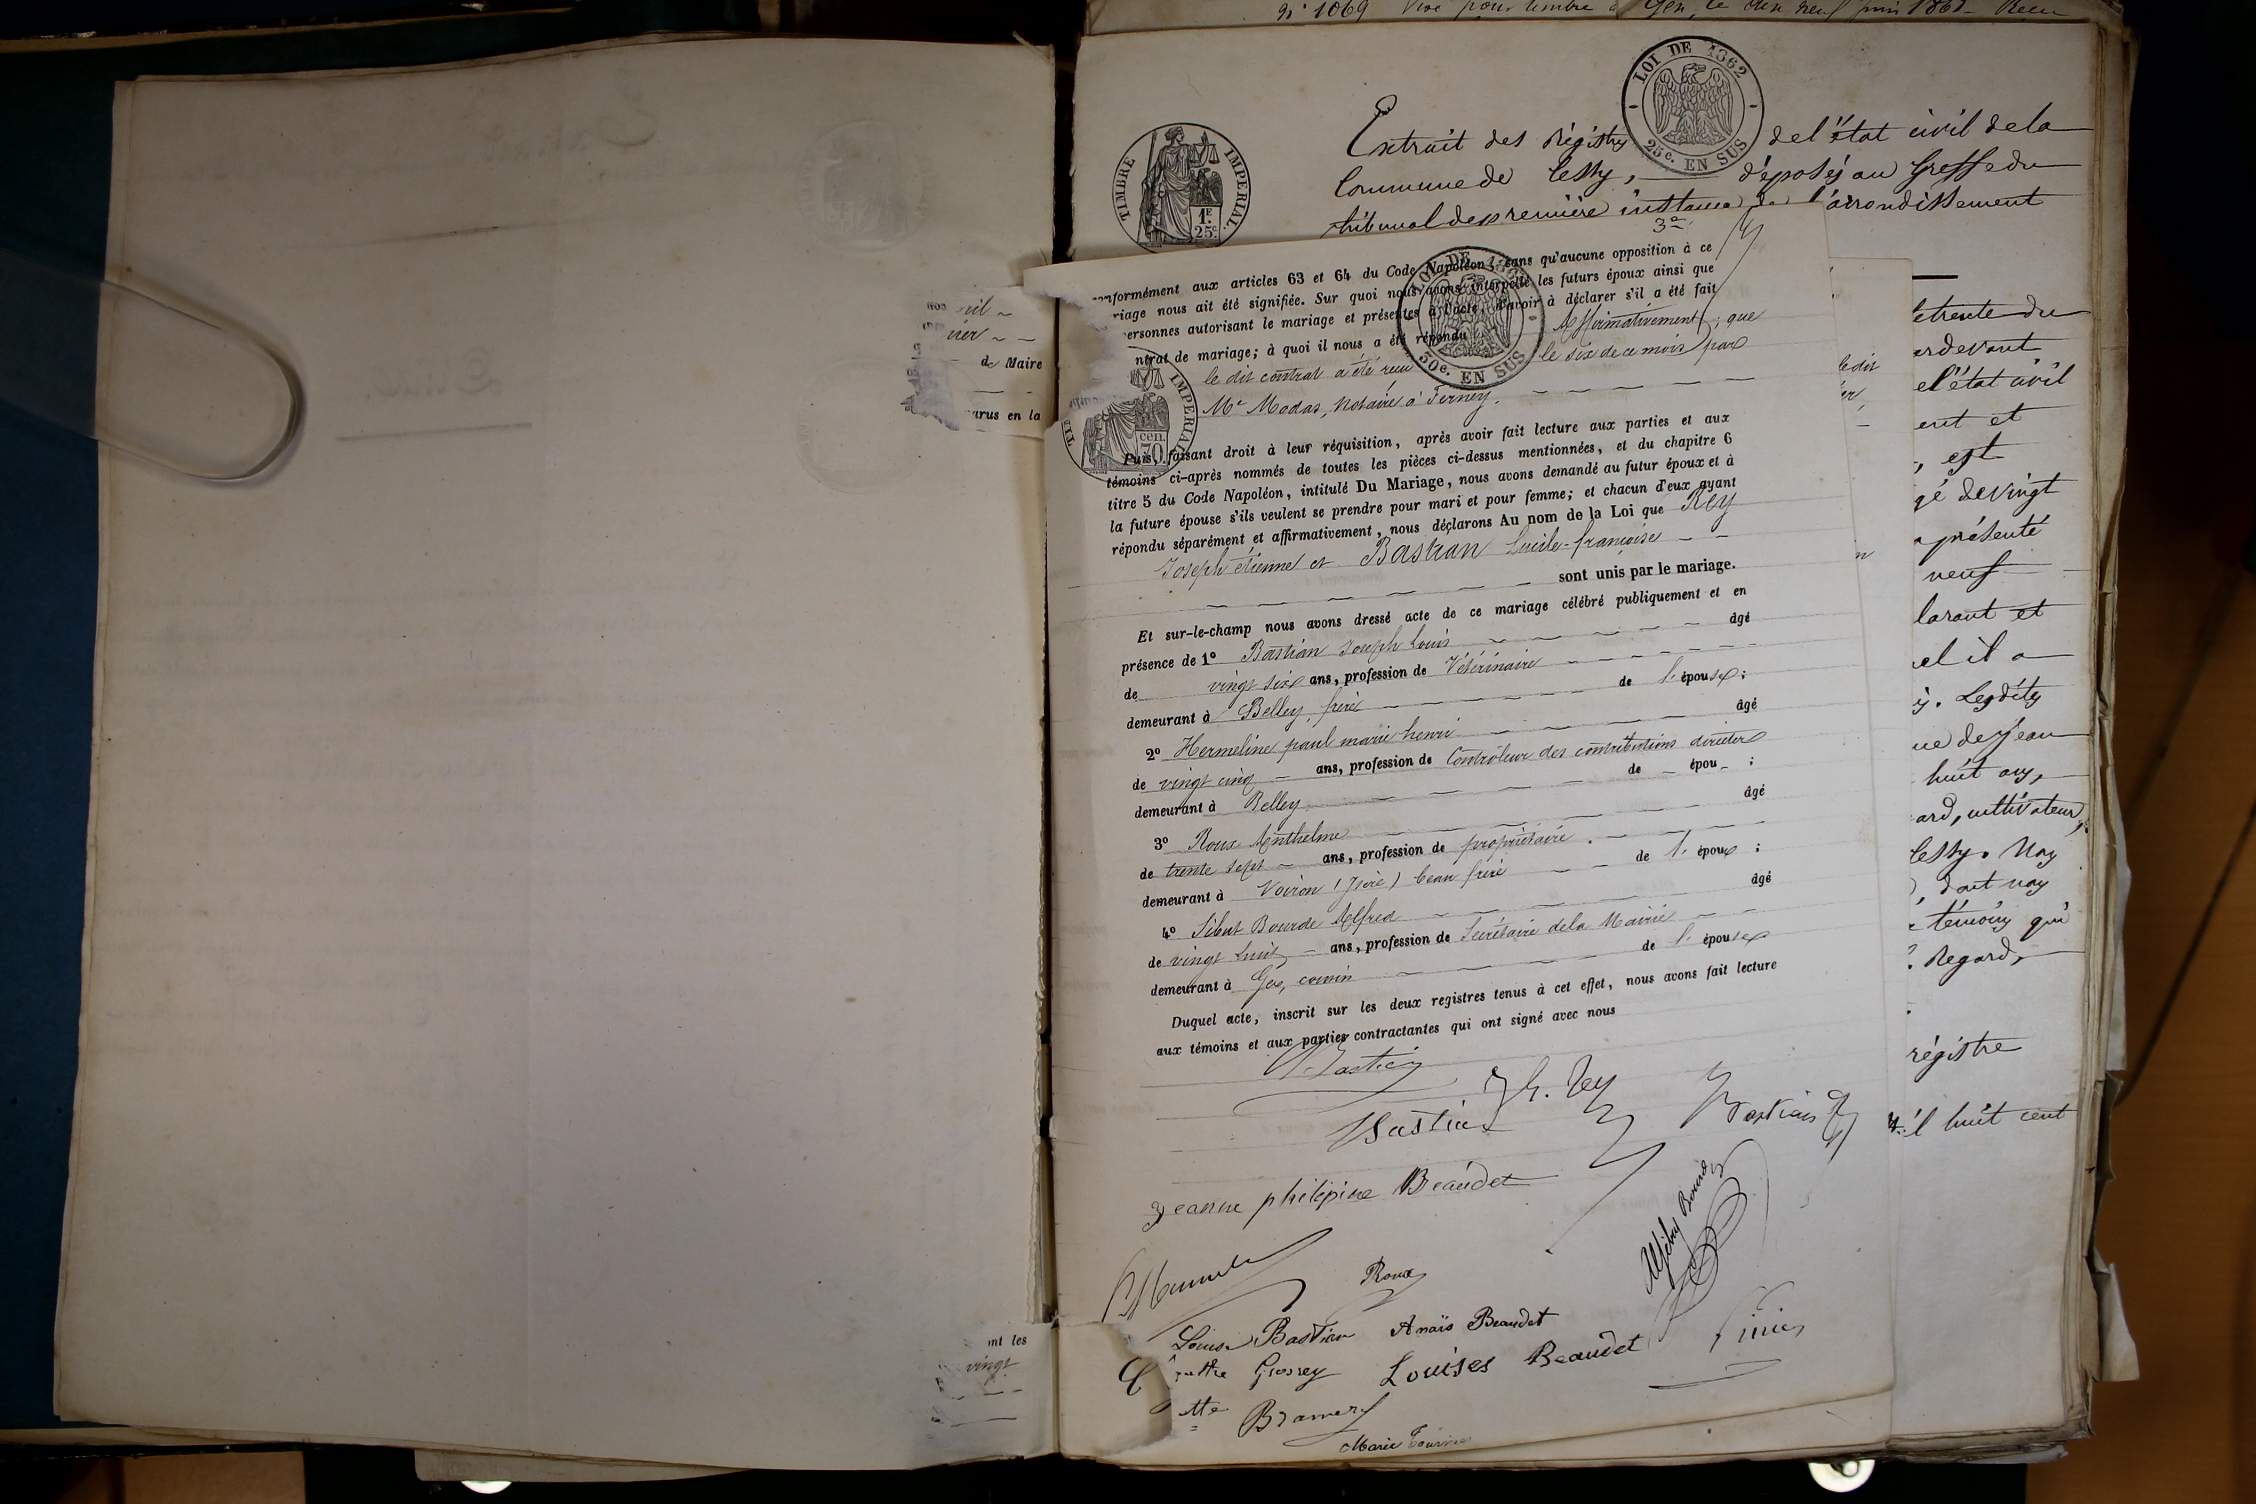 N° 1069 Visé pour timbre à Gex, le dix neuf juin 186
LOI DE 1862
25c. EN SUS
TIMBRE IMPERIAL
1F 25c.
Extrait des Régistres de l'état civil de la
Commune de Cessy, déposés au Greffe du
tribunal de première instance de l'arrondissement
3e
conformément aux articles 63 et 64 du Code Napoléon, sans qu'aucune opposition à ce
riage nous ait été signifiée. Sur quoi nous avons interpellé les futurs époux ainsi que
personnes autorisant le mariage et présentes à l'acte, d'avoir à déclarer s'il a été fait
ntrat de mariage; à quoi il nous a été répondu Affirmativement; que
le dit contrat a été reçu le six de ce mois par
Me Modas, Notaire à Ferney.
LOI DE 1862
50c. EN SUS
IMPERIAL
cen. 50
Puis, faisant droit à leur réquisition, après avoir fait lecture aux parties et aux
témoins ci-après nommés de toutes les pièces ci-dessus mentionnées, et du chapitre 6
titre 5 du Code Napoléon, intitulé Du Mariage, nous avons demandé au futur époux et à
la future épouse s'ils veulent se prendre pour mari et pour femme; et chacun d'eux ayant
répondu séparément et affirmativement, nous déclarons Au nom de la Loi que Rey
Joseph étienne et Bastian Lucile-françoise
sont unis par le mariage.
Et sur-le-champ nous avons dressé acte de ce mariage célébré publiquement et en
présence de 1° Bastian Joseph Louis âgé
de vingt six ans, profession de Vétérinaire
demeurant à Belley, frère de l'épouse;
2° Hermeline paul marie henri âgé
de vingt cinq ans, profession de Contrôleur des contributions directes
demeurant à Belley de épou ;
3° Roux Anthelme âgé
de trente sept ans, profession de propriétaire.
demeurant à Voiron (Isère) beau frère de l'époux ;
4° Sibut Bourde Alfred âgé
de vingt huit ans, profession de Secrétaire de la Mairie
demeurant à Gex, cousin de l'épouse
Duquel acte, inscrit sur les deux registres tenus à cet effet, nous avons fait lecture
aux témoins et aux parties contractantes qui ont signé avec nous
Bastian
Rey
Bastian
Bastian
Jeanne philipine Beaudet
Roux
Louise Bastian Anaïs Beaudet
Grossey Louises Beaudet
Bramer
Marie
de Maire
arus en la
nt les
vingt
le dit
et trente du
ardevant
el'état civil
ent et
, est
gé de vingt
présenté
neuf
larant et
el il a
y. Lesdits
ue de Jean
huit ans,
ard, cultivateur,
Cessy. Nous
, dont nous
témoins qui
Regard,
régistre
il huit cent